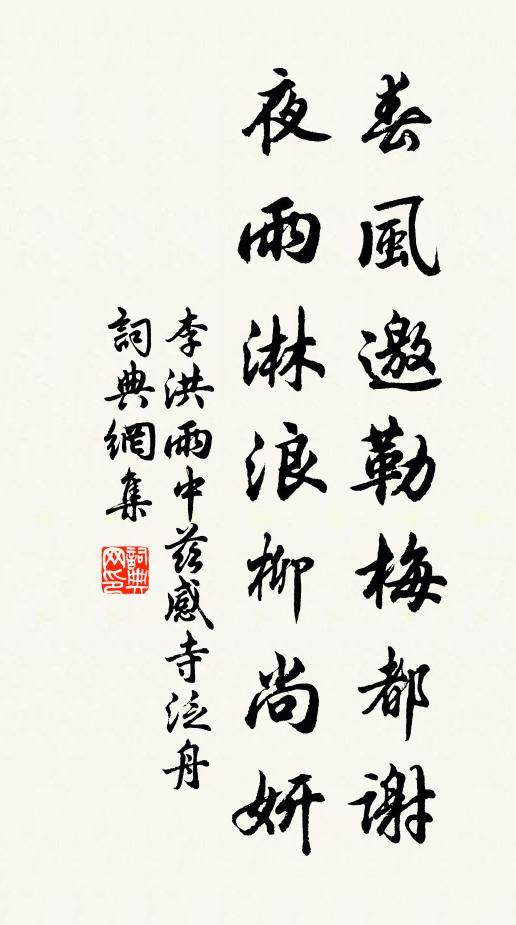 春風邀勒梅都謝
夜雨淋浪柳尚妍
李洪雨中茲感寺泛舟
詞典網集
詞典网印